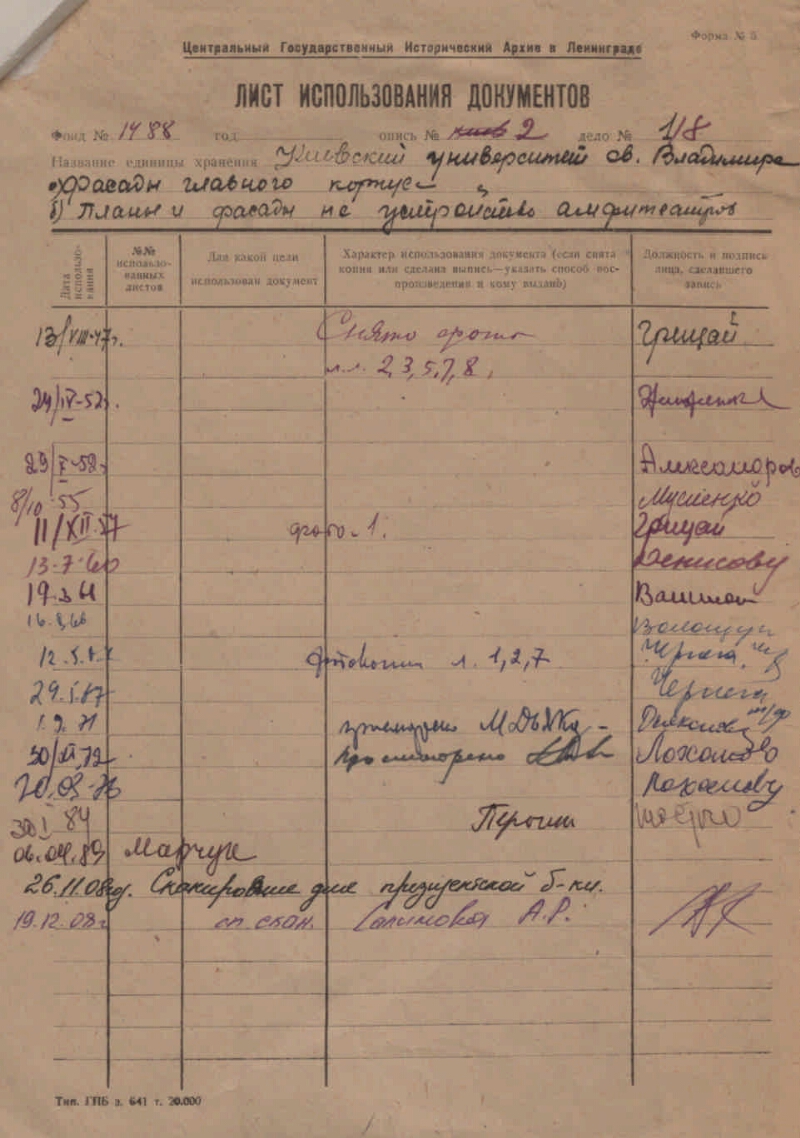 Форма № 5
Центральный Государственный Исторический Архив в Ленинграде
ЛИСТ ИСПОЛЬЗОВАНИЯ ДОКУМЕНТОВ
Фонд № 1488 год опись № 2 дело № 1/8
Название единицы хранения Киевский университет св. Владимира
Фасады главного корпуса
б) Планы и фасады на устройство амфитеатров
Дата использования
№№ использованных листов
Для какой цели использован документ
Характер использования документа (если снята копия или сделана выпись—указать способ воспроизведения и кому выдано)
Должность и подпись лица, сделавшего запись
13/VIII-47г. Снято фото Грицай
л.л. 2,3,5,7,8,
24/IV-52г.
29/X-52г. Александров
8/10-55 Мусиенко
11/XII-57 фото-1. Грицай
13-7-60 Денисову
19.3.61
Волощук
12.5.67 фотокопии л. 1,2,7 Чернега
29.5.67 Чернега
1.9.71 просмотрено
30/XI.72 просмотрено
20.02.76
30.I.84
06.04.89 Марчук
26.11.08г. Сканирование для президентской б-ки.
19.12.08г. сл. скан. Галимова А.Р.
Тип. ГПБ з. 641 т. 20.000